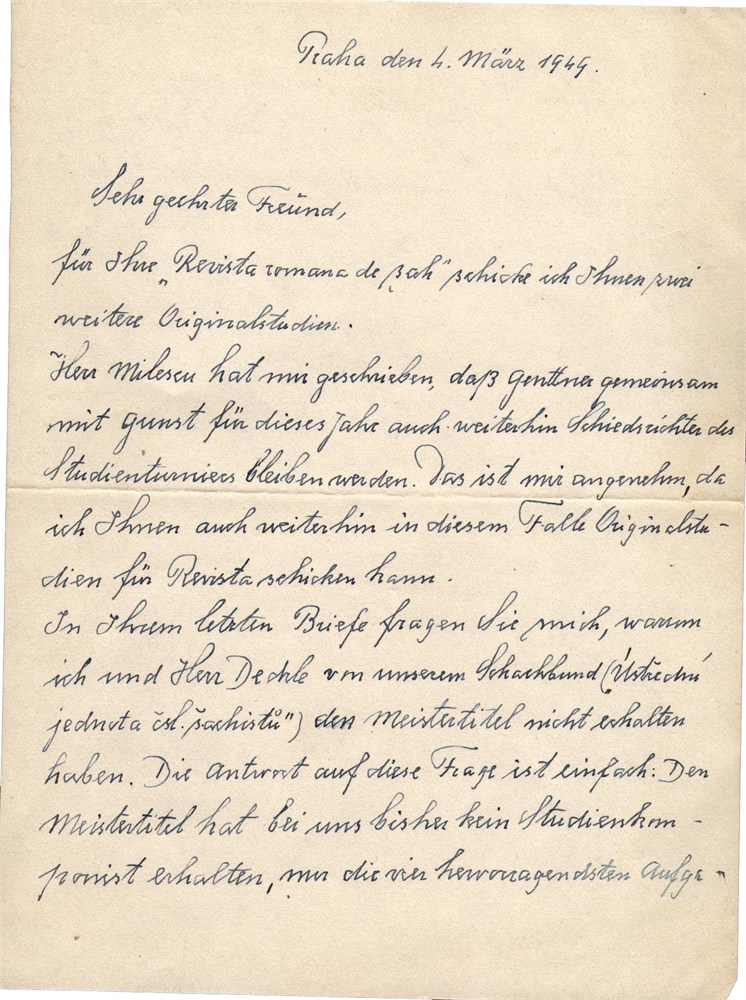 Praha den 4. März 1949.
Sehr geehrter Freund,
für Ihre „Revista romana de şah" schicke ich Ihnen zwei
weitere Originalstudien.
Herr Milescu hat mir geschrieben, daß Genttner gemeinsam
mit Gunst für dieses Jahr auch weiterhin Schiedsrichter des
Studienturniers bleiben werden. Das ist mir angenehm, da
ich Ihnen auch weiterhin in diesem Falle Originalstu-
dien für Revista schicken kann.
In Ihrem letzten Briefe fragen Sie mich, warum
ich und Herr Dedrle von unserem Schachbund („Ústřední
jednota čsl. šachistů") den Meistertitel nicht erhalten
haben. Die Antwort auf diese Frage ist einfach: Den
Meistertitel hat bei uns bisher kein Studienkom-
ponist erhalten, nur die vier hervorragendsten Aufga-